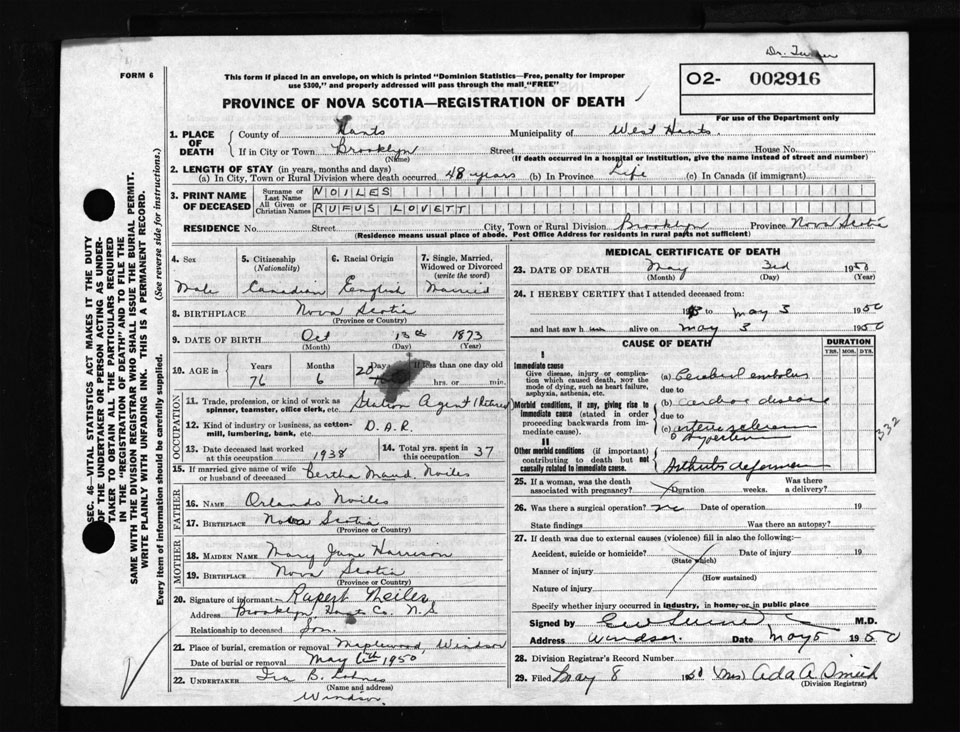 Dr.
FORM 6
This form if placed in an envelope, on which is printed "Dominion Statistics—Free, penalty for improper
use $300," and properly addressed will pass through the mail "FREE"
O2- 002916
PROVINCE OF NOVA SCOTIA—REGISTRATION OF DEATH
For use of the Department only
1. PLACE OF DEATH
County of Hants Municipality of West Hants.
If in City or Town Brooklyn Street House No.
(Name) (If death occurred in a hospital or institution, give the name instead of street and number)
2. LENGTH OF STAY (in years, months and days)
(a) In City, Town or Rural Division where death occurred 48 years (b) In Province Life (c) In Canada (if immigrant)
3. PRINT NAME OF DECEASED
Surname or Last Name NOILES
All Given or Christian Names RUFUS LOVETT
RESIDENCE No. Street City, Town or Rural Division Brooklyn Province Nova Scotia
(Residence means usual place of abode. Post Office Address for residents in rural parts not sufficient)
4. Sex 5. Citizenship (Nationality) 6. Racial Origin 7. Single, Married, Widowed or Divorced (write the word)
Male Canadian English Married
8. BIRTHPLACE Nova Scotia
(Province or Country)
9. DATE OF BIRTH Oct 13th 1873
(Month) (Day) (Year)
10. AGE in Years Months Days If less than one day old
76 6 20 hrs. or min.
OCCUPATION
11. Trade, profession, or kind of work as spinner, teamster, office clerk, etc. Station Agent (Retired)
12. Kind of industry or business, as cotton-mill, lumbering, bank, etc. D.A.R.
13. Date deceased last worked at this occupation 1938 14. Total yrs. spent in this occupation 37
15. If married give name of wife or husband of deceased Bertha Maud Noiles
FATHER
16. NAME Orlando Noiles
17. BIRTHPLACE Nova Scotia
(Province or Country)
MOTHER
18. MAIDEN NAME Mary Jane Harrison
19. BIRTHPLACE Nova Scotia
(Province or Country)
20. Signature of informant Rupert Noiles
Address Brooklyn Hants Co. N.S
Relationship to deceased Son.
21. Place of burial, cremation or removal Maplewood, Windsor
Date of burial or removal May 6th 1950
22. UNDERTAKER Ira B. Lohnes
(Name and address)
Windsor.
MEDICAL CERTIFICATE OF DEATH
23. DATE OF DEATH May 3rd 1950
(Month) (Day) (Year)
24. I HEREBY CERTIFY that I attended deceased from:
to May 3 1950
and last saw h im alive on May 3 1950
CAUSE OF DEATH DURATION
YRS. MOS. DYS.
I
Immediate cause
Give disease, injury or complication which caused death, NOT the mode of dying, such as heart failure, asphyxia, asthenia, etc.
(a) Cerebral embolus
due to
Morbid conditions, if any, giving rise to immediate cause (stated in order proceeding backwards from immediate cause).
(b) cardiac disease
due to
(c)
332
II
Other morbid conditions (if important) contributing to death but not causally related to immediate cause.
Arthritis deformans
25. If a woman, was the death associated with pregnancy? Duration weeks. Was there a delivery?
26. Was there a surgical operation? no Date of operation 19
State findings Was there an autopsy?
27. If death was due to external causes (violence) fill in also the following:—
Accident, suicide or homicide? Date of injury 19
(State which)
Manner of injury
(How sustained)
Nature of injury
Specify whether injury occurred in industry, in home, or in public place
Signed by M.D.
Address Windsor. Date May 5 1950
28. Division Registrar's Record Number
29. Filed May 8 1950 Mrs Ada A. Smith
(Division Registrar)
SEC. 46—VITAL STATISTICS ACT MAKES IT THE DUTY
OF THE UNDERTAKER OR PERSON ACTING AS UNDER-
TAKER TO OBTAIN ALL THE PARTICULARS REQUIRED
IN THE "REGISTRATION OF DEATH" AND TO FILE THE
SAME WITH THE DIVISION REGISTRAR WHO SHALL ISSUE THE BURIAL PERMIT.
WRITE PLAINLY WITH UNFADING INK. THIS IS A PERMANENT RECORD.
Every item of information should be carefully supplied. (See reverse side for instructions.)